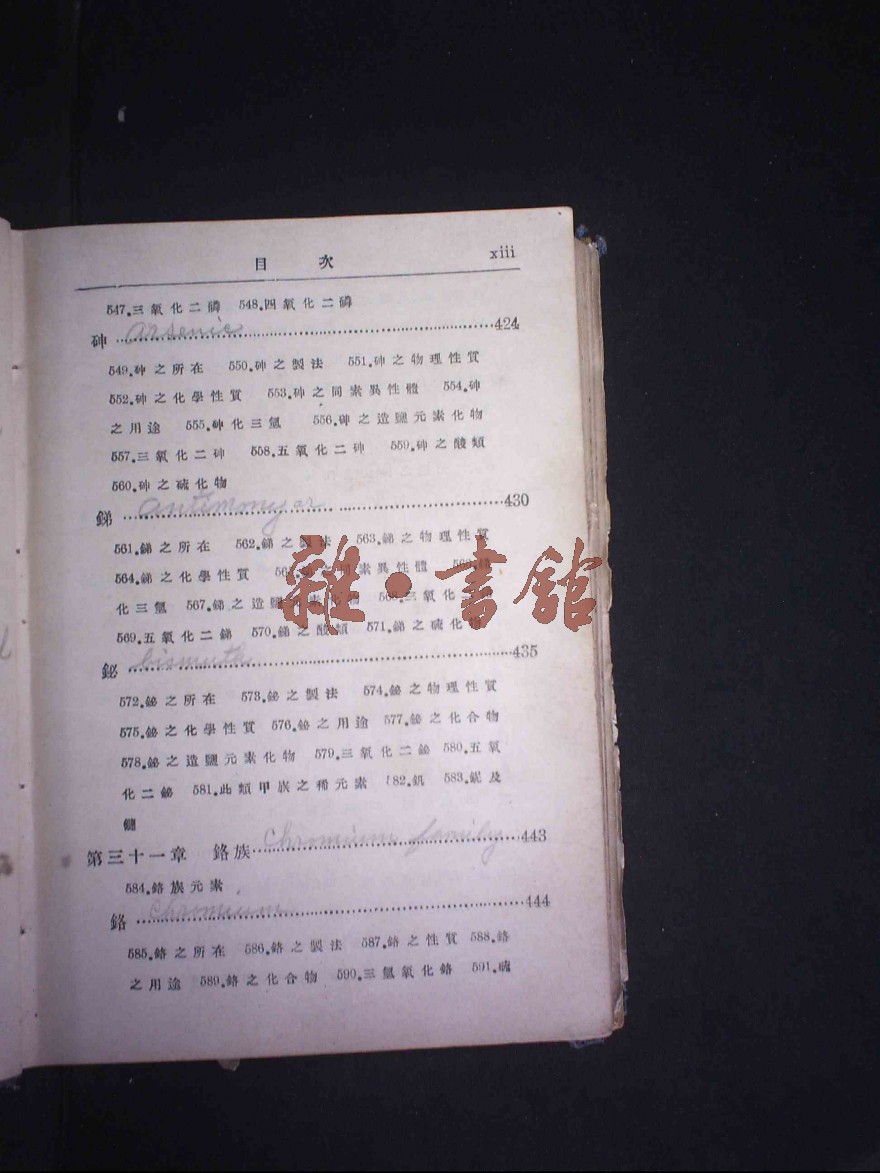 目 次 xiii
547.三氧化二磷 548.四氧化二磷
砷 arsenic 424
549.砷之所在 550.砷之製法 551.砷之物理性質
552.砷之化學性質 553.砷之同素異性體 554.砷
之用途 555.砷化三氫 556.砷之造鹽元素化物
557.三氧化二砷 558.五氧化二砷 559.砷之酸類
560.砷之硫化物
銻 antimony or 430
561.銻之所在 562.銻之製法 563.銻之物理性質
564.銻之化學性質 素異性體
化三氫 567.銻之造鹽 三氧化
569.五氧化二銻 570.銻之酸類 571.銻之硫化物
雜•書館
鉍 bismuth 435
572.鉍之所在 573.鉍之製法 574.鉍之物理性質
575.鉍之化學性質 576.鉍之用途 577.鉍之化合物
578.鉍之造鹽元素化物 579.三氧化二鉍 580.五氧
化二鉍 581.此類甲族之稀元素 582.釩 583.鈮及
第三十一章 鉻族 Chromium family 443
584.鉻族元素
鉻 Chromium 444
585.鉻之所在 586.鉻之製法 587.鉻之性質 588.鉻
之用途 589.鉻之化合物 590.三氫氧化鉻 591.硫